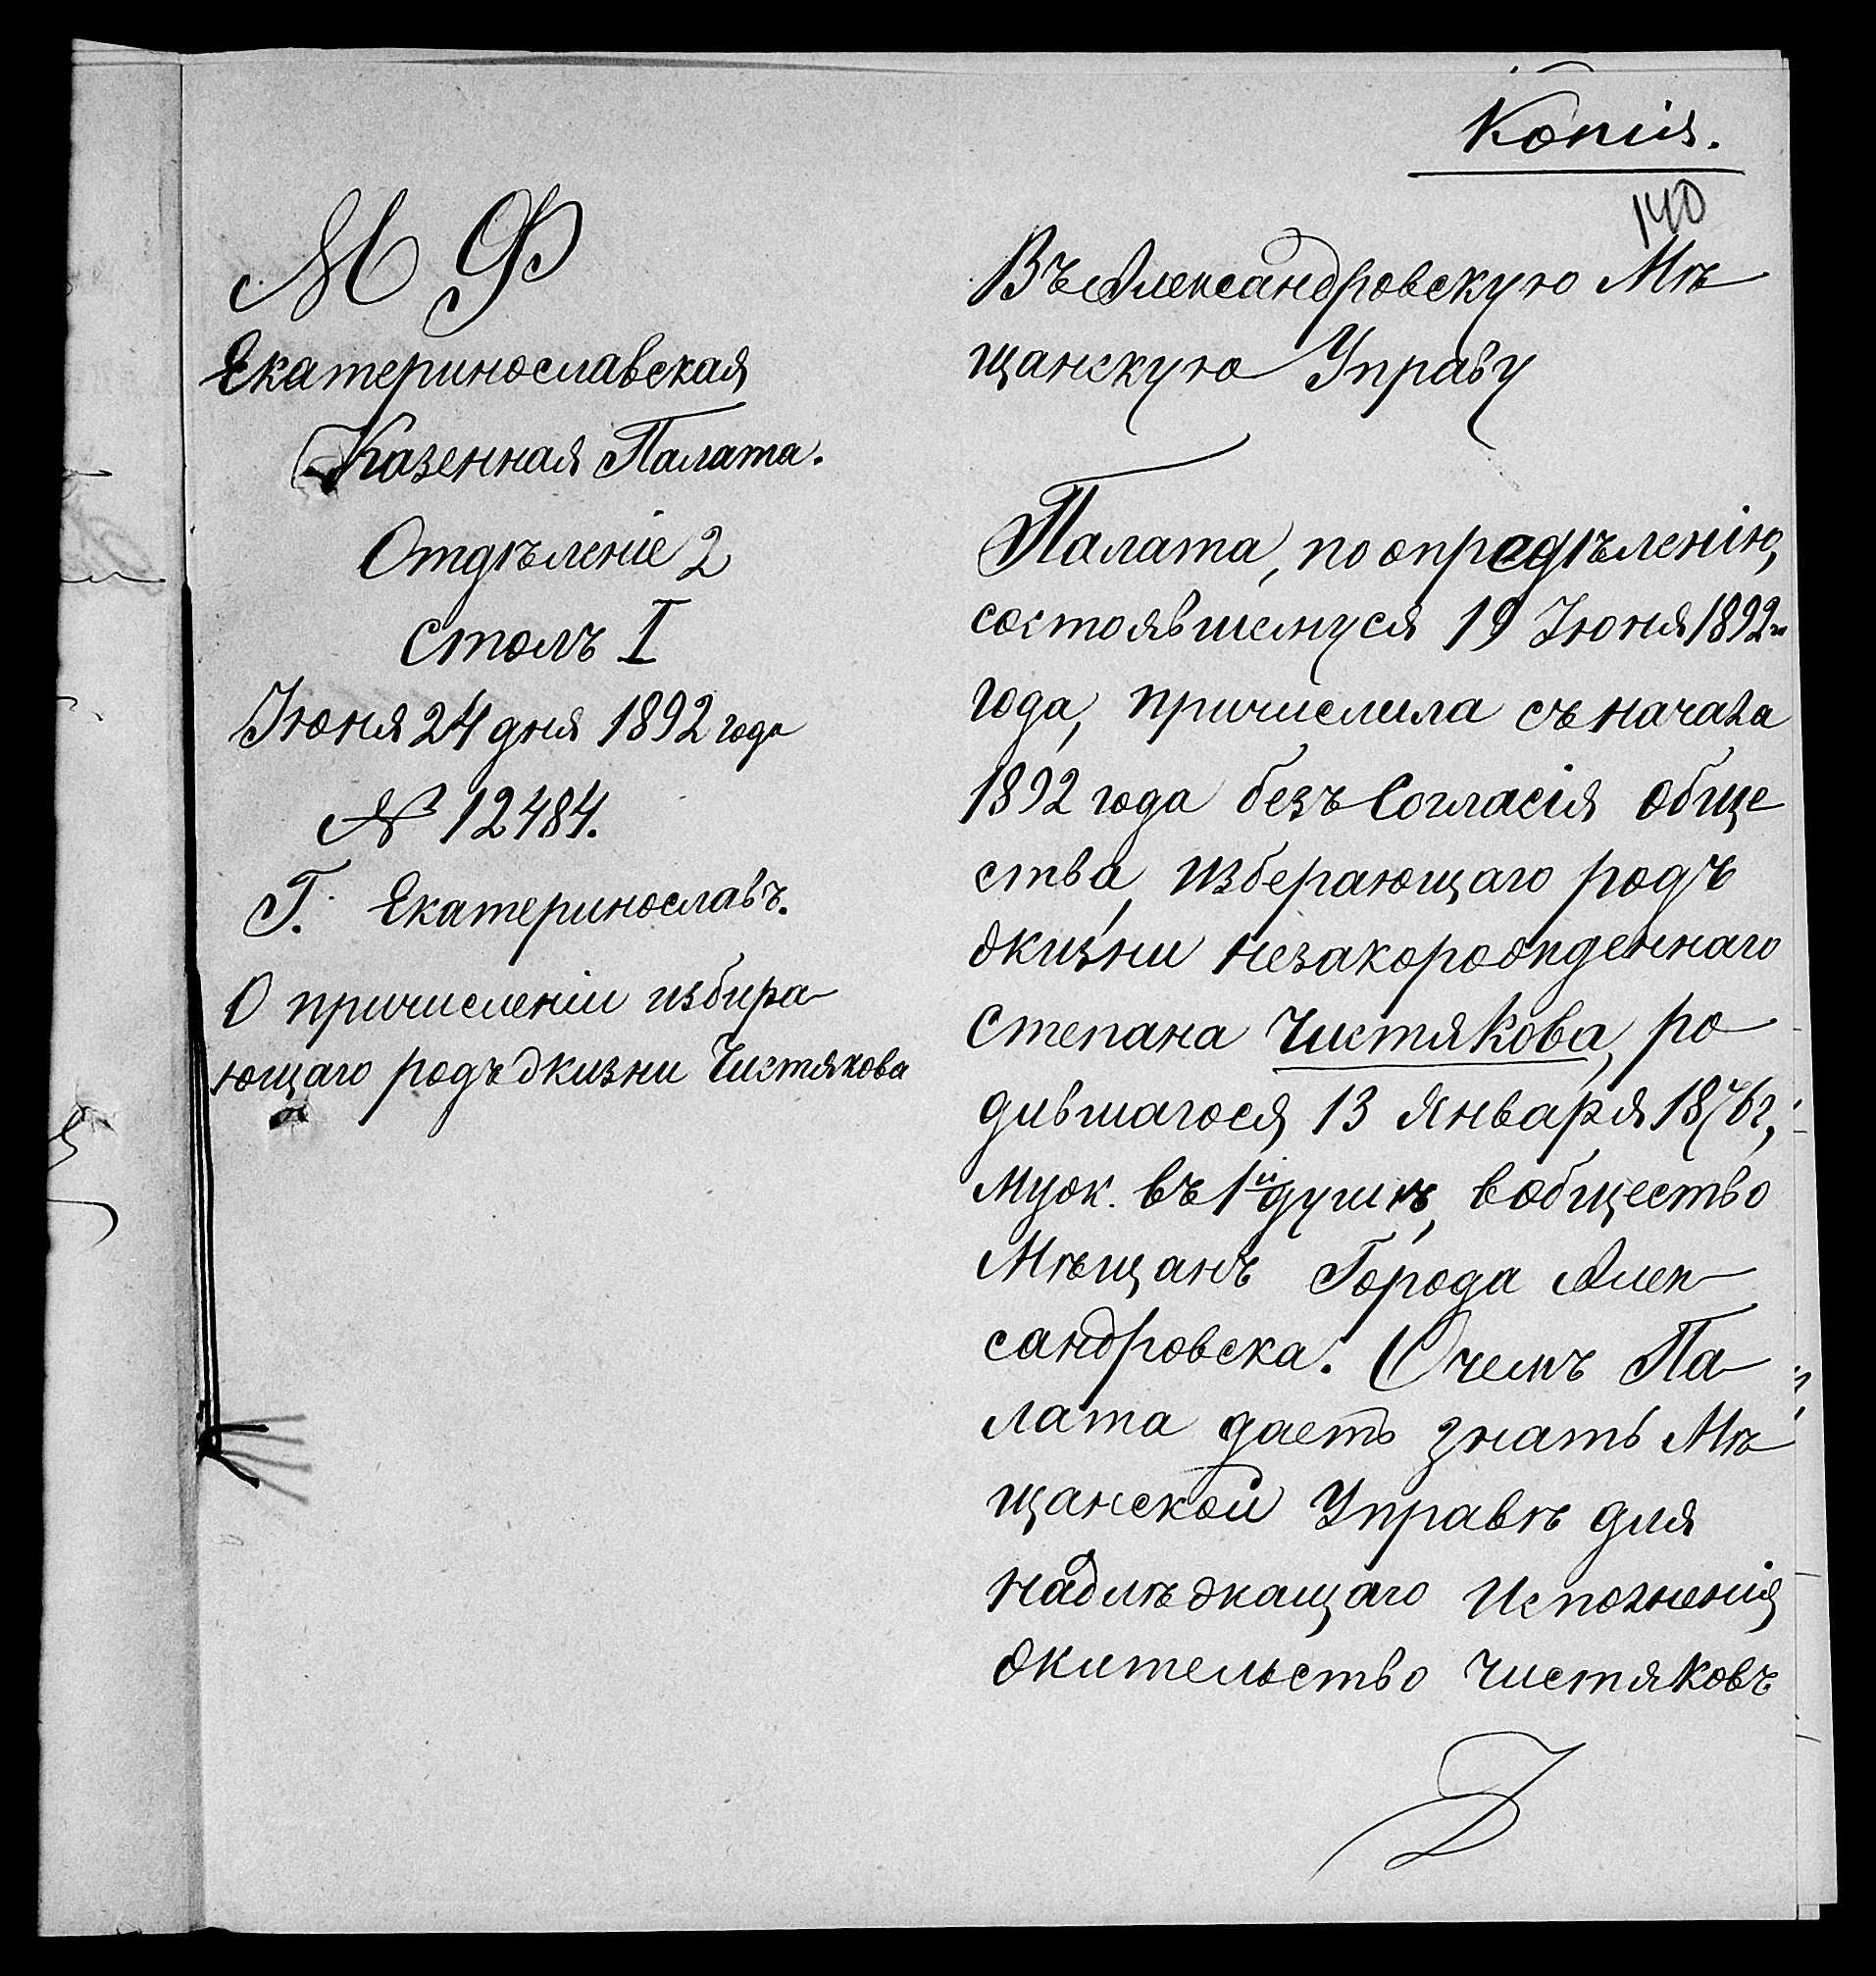 Копія.
140
М Ф
Екатеринославская
Казенная Палата.
Отдѣленіе 2
Столъ I
Іюня 24 дня 1892 года
№ 12484.
Г. Екатеринославъ.
О причисленіи избира
ющаго родъ жизни Чистякова
Въ Александровскую Мѣ
щанскую Управу
Палата, по опредѣленію,
состоявшемуся 19 Іюня 1892
года, причислила съ начала
1892 года безъ Согласія обще
ства, изберающаго родъ
жизни незакорожденнаго
Степана Чистякова, ро
дившагося 13 Января 1876 г,
муж. въ 1й душѣ, вобщество
Мѣщанъ Города Алек
сандровска. О чемъ Па
лата даетъ знать Мѣ
щанской Управѣ для
надлѣжащаго Исполненія
жительство Чистяковъ